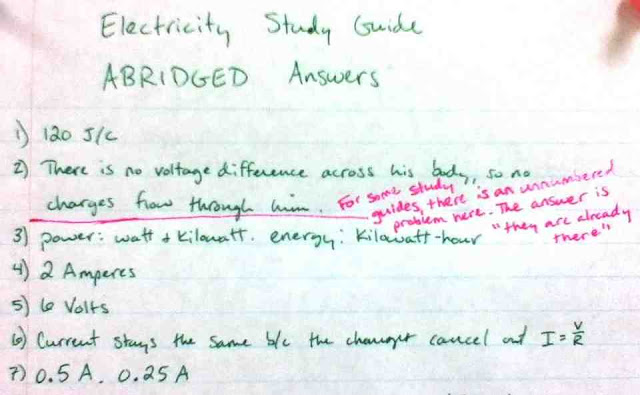 Electricity Study Guide
ABRIDGED Answers
1) 120 J/C
2) There is no voltage difference across his body, so no
charges flow through him.
For some study
guides, there is an unnumbered
problem here. The answer is
"they are already
there"
3) power: watt & Kilowatt. energy: Kilowatt-hour
4) 2 Amperes
5) 6 Volts
6) Current stays the same b/c the changes cancel out I = V/R
7) 0.5 A. 0.25 A